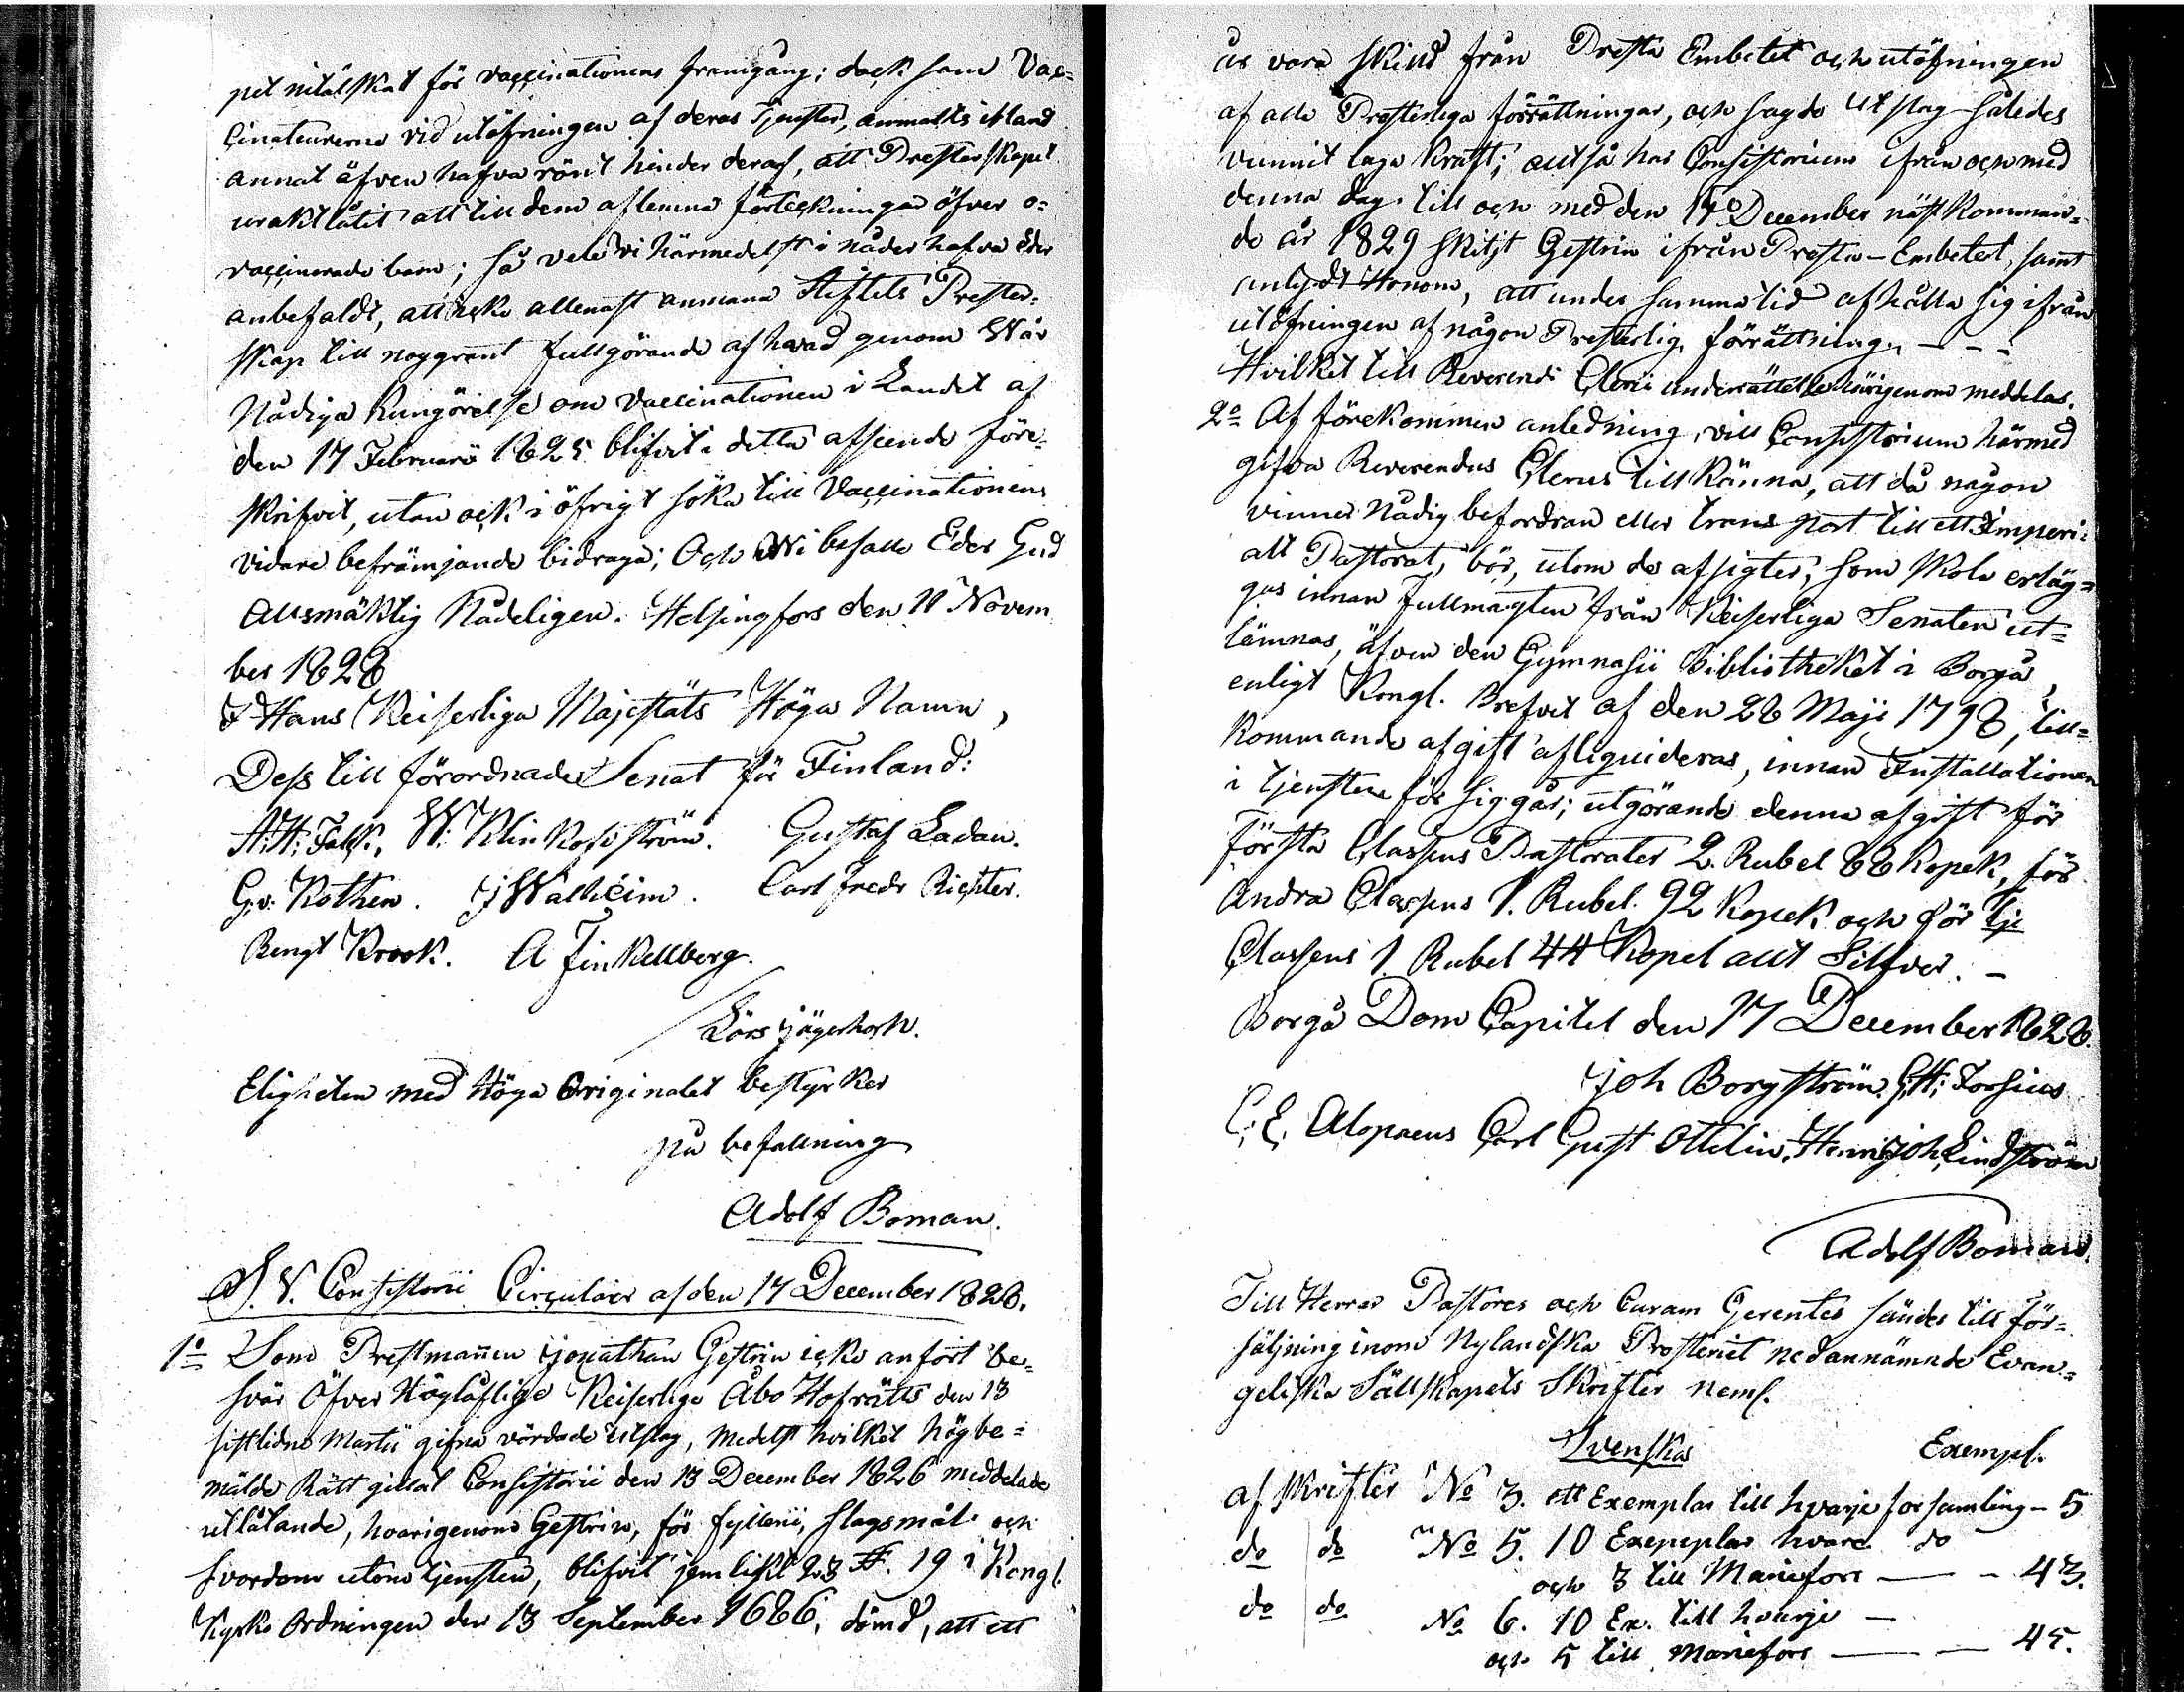 pet nitälskat för vaccinationens framgång; dock som Vac=
cinateurerne vid utöfningen af deras tjenster, anmälts ibland
annat äfven hafva rönt hinder deraf, att Presterskapet
uraktlåtit att till dem aflemna förteckningar öfver o=
vaccinerade barn; så vele vi härmedelst i nåder hafva Eder
anbefaldt, att icke allenast anmana Stiftets Prester=
skap till noggrant fullgörande af hvad genom Wår
Nådiga Kungörelse om Vaccinationen i Landet af
den 17 Februarii 1825 blifvit i detta afseende före=
skrifvit, utan ock i öfrigt söka till Vaccinationens
vidare befrämjande bidraga; Och Wi befalle Eder Gud
Allsmäktig Nådeligen. Helsingfors den 11 Novem
ber 1828
I Hans Keiserliga Majestäts Höga Namn,
Dess till förordnade Senat för Finland:
A: H: Falk. W: Klinkofström. Gustaf Ladau.
G. v: Kothen. J Walheim. Carl Fredr Richter.
Bengt Krook. A Finkellberg.
Lars Jägerhorn.
Eligheten med Höga Originalet bestyrker
på befallning
Adolf Boman.
S. V. Consistorii Circulair af den 17 December 1828.
1o Som Prestmannen Jonathan Gestrin icke anfört be=
svär Öfver Höglåflige Keiserlige Åbo Hofrätts den 13
sistlidne Martii gifna vördade utslag, medelst hvilket högbe=
mälde Rätt gillat Consistorii den 13 December 1826 meddelade
utlåtande, hvarigenom Gestrin, för fylleri, slagsmål och
svordom utom tjensten, blifvit jemlikt 19 i Kongl.
Kyrko Ordningen den 13 September 1686, dömd, att ett
år vara skild från Presta Embetet och utöfningen
af alla Presterliga förrättningar, och sagde utslag således
vunnit laga kraft; altså har Consistorium ifrån och med
denna dag till och med den 17 December nästkomman=
de år 1829 skiljt Gestrin ifrån Presta-Embetet, samt
Honom, att under samma tid afhålla sig ifrån
utöfningen af någon Presterlig förrättning. - - -
Hvilket till Reverendi Cleri underrättelse härigenom meddelas.
2o Af förekommen anledning, vill Consistorium härmed
gifva Reverendus Clerus tillkänna, att då någon
vinner Nådig befordran eller transport till ett Imperi=
alt Pastorat, bör, utom de afgifter, som skola erläg=
gas innan Fullmagten från Keiserliga Senaten ut=
lämnas, äfven den Gymnasii Bibliotheket i Borgå,
enligt Kongl. Brefvet af den 28 Maji 1798, till=
kommande afgift afliquideras, innan Installationen
i tjensten för sig går; utgörande denna afgift för
Första Classens Pastorater 2. Rubel 88 kopek, för
Andra Classens 1. Rubel. 92 kopek och för 3je
Classens 1 Rubel 44 Kopek allt Silfver. -
Borgå Dom Capitel den 17 December 1828.
Joh Borgström. G. H: Forsius
C. E. Alopaeus Carl Gust Ottelin. Henr Joh Lindström
Adolf Boman.
Till Herrar Pastores och Curam Gerentes sändes till för=
säljning inom Nylandska Prosteriet nedannämnde Evan=
geliska Sällskapets Skrifter neml.
Svenska Exempl.
af skrifter No 3. ett Exemplar till hvarje forsamling - 5
do do No 5. 10 Exepeplar hvare do
och 3 till Mariefors — - 43.
do do No 6. 10 Ex. till hvarje —
och 5 till Mariefors — — 45.